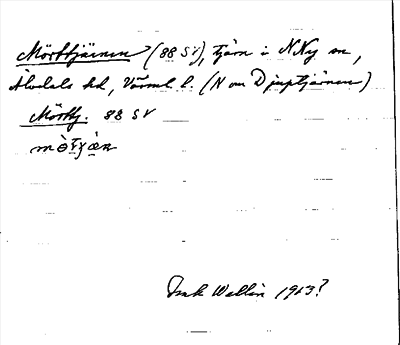 Mörttjärnen (88 SV), tjärn i N Ny sn,
Älvdals hd, Värml. l. (N om Djuptjärnen)
Mörttj. 88 SV
Isak Wallin 1913?